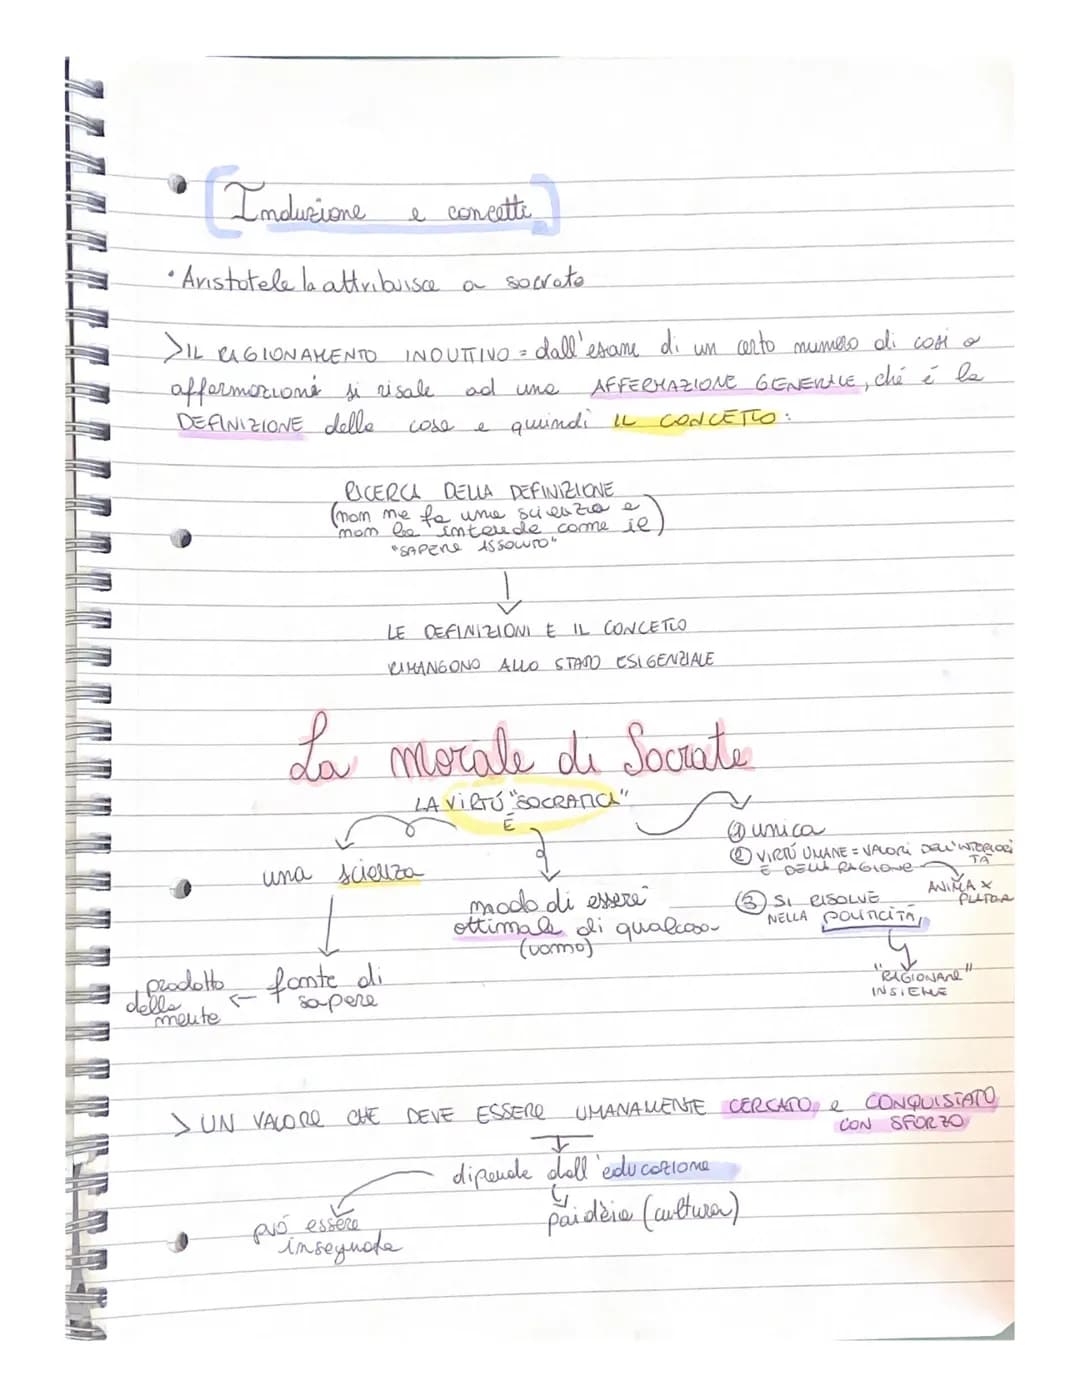 Induzione e concetti
• Aristotele la attribuisce a socrate
>IL RAGIONAMENTO INDUTTIVO = dall'esame di un certo numero di casi o
affermazioni si risale ad una AFFERMAZIONE GENERALE, che è la
DEFINIZIONE della cosa e quindi IL CONCETTO:
RICERCA DELLA DEFINIZIONE
(non ne fa una scienza e
non la intende come il)
"SAPERE ASSOLUTO"
LE DEFINIZIONI E IL CONCETTO
RIMANGONO ALLO STATO ESIGENZIALE
La morale di Socrate
LA VIRTÚ "SOCRATICA"
É
una scienza
fonte di
sapere
prodotto
della
mente
modo di essere
ottimale di qualcosa
(uomo)
① unica
② VIRTÚ UMANE = VALORI DELL'INTERIORI
TÀ
E DELLA RAGIONE
ANIMA X
PLATONE
③ SI RISOLVE
NELLA POLITICITÀ,
"RAGIONARE"
INSIEME
> UN VALORE CHE DEVE ESSERE UMANAMENTE CERCATO e CONQUISTATO
CON SFORZO
dipende dall'educazione
paidèia (cultura)
può essere
insegnata